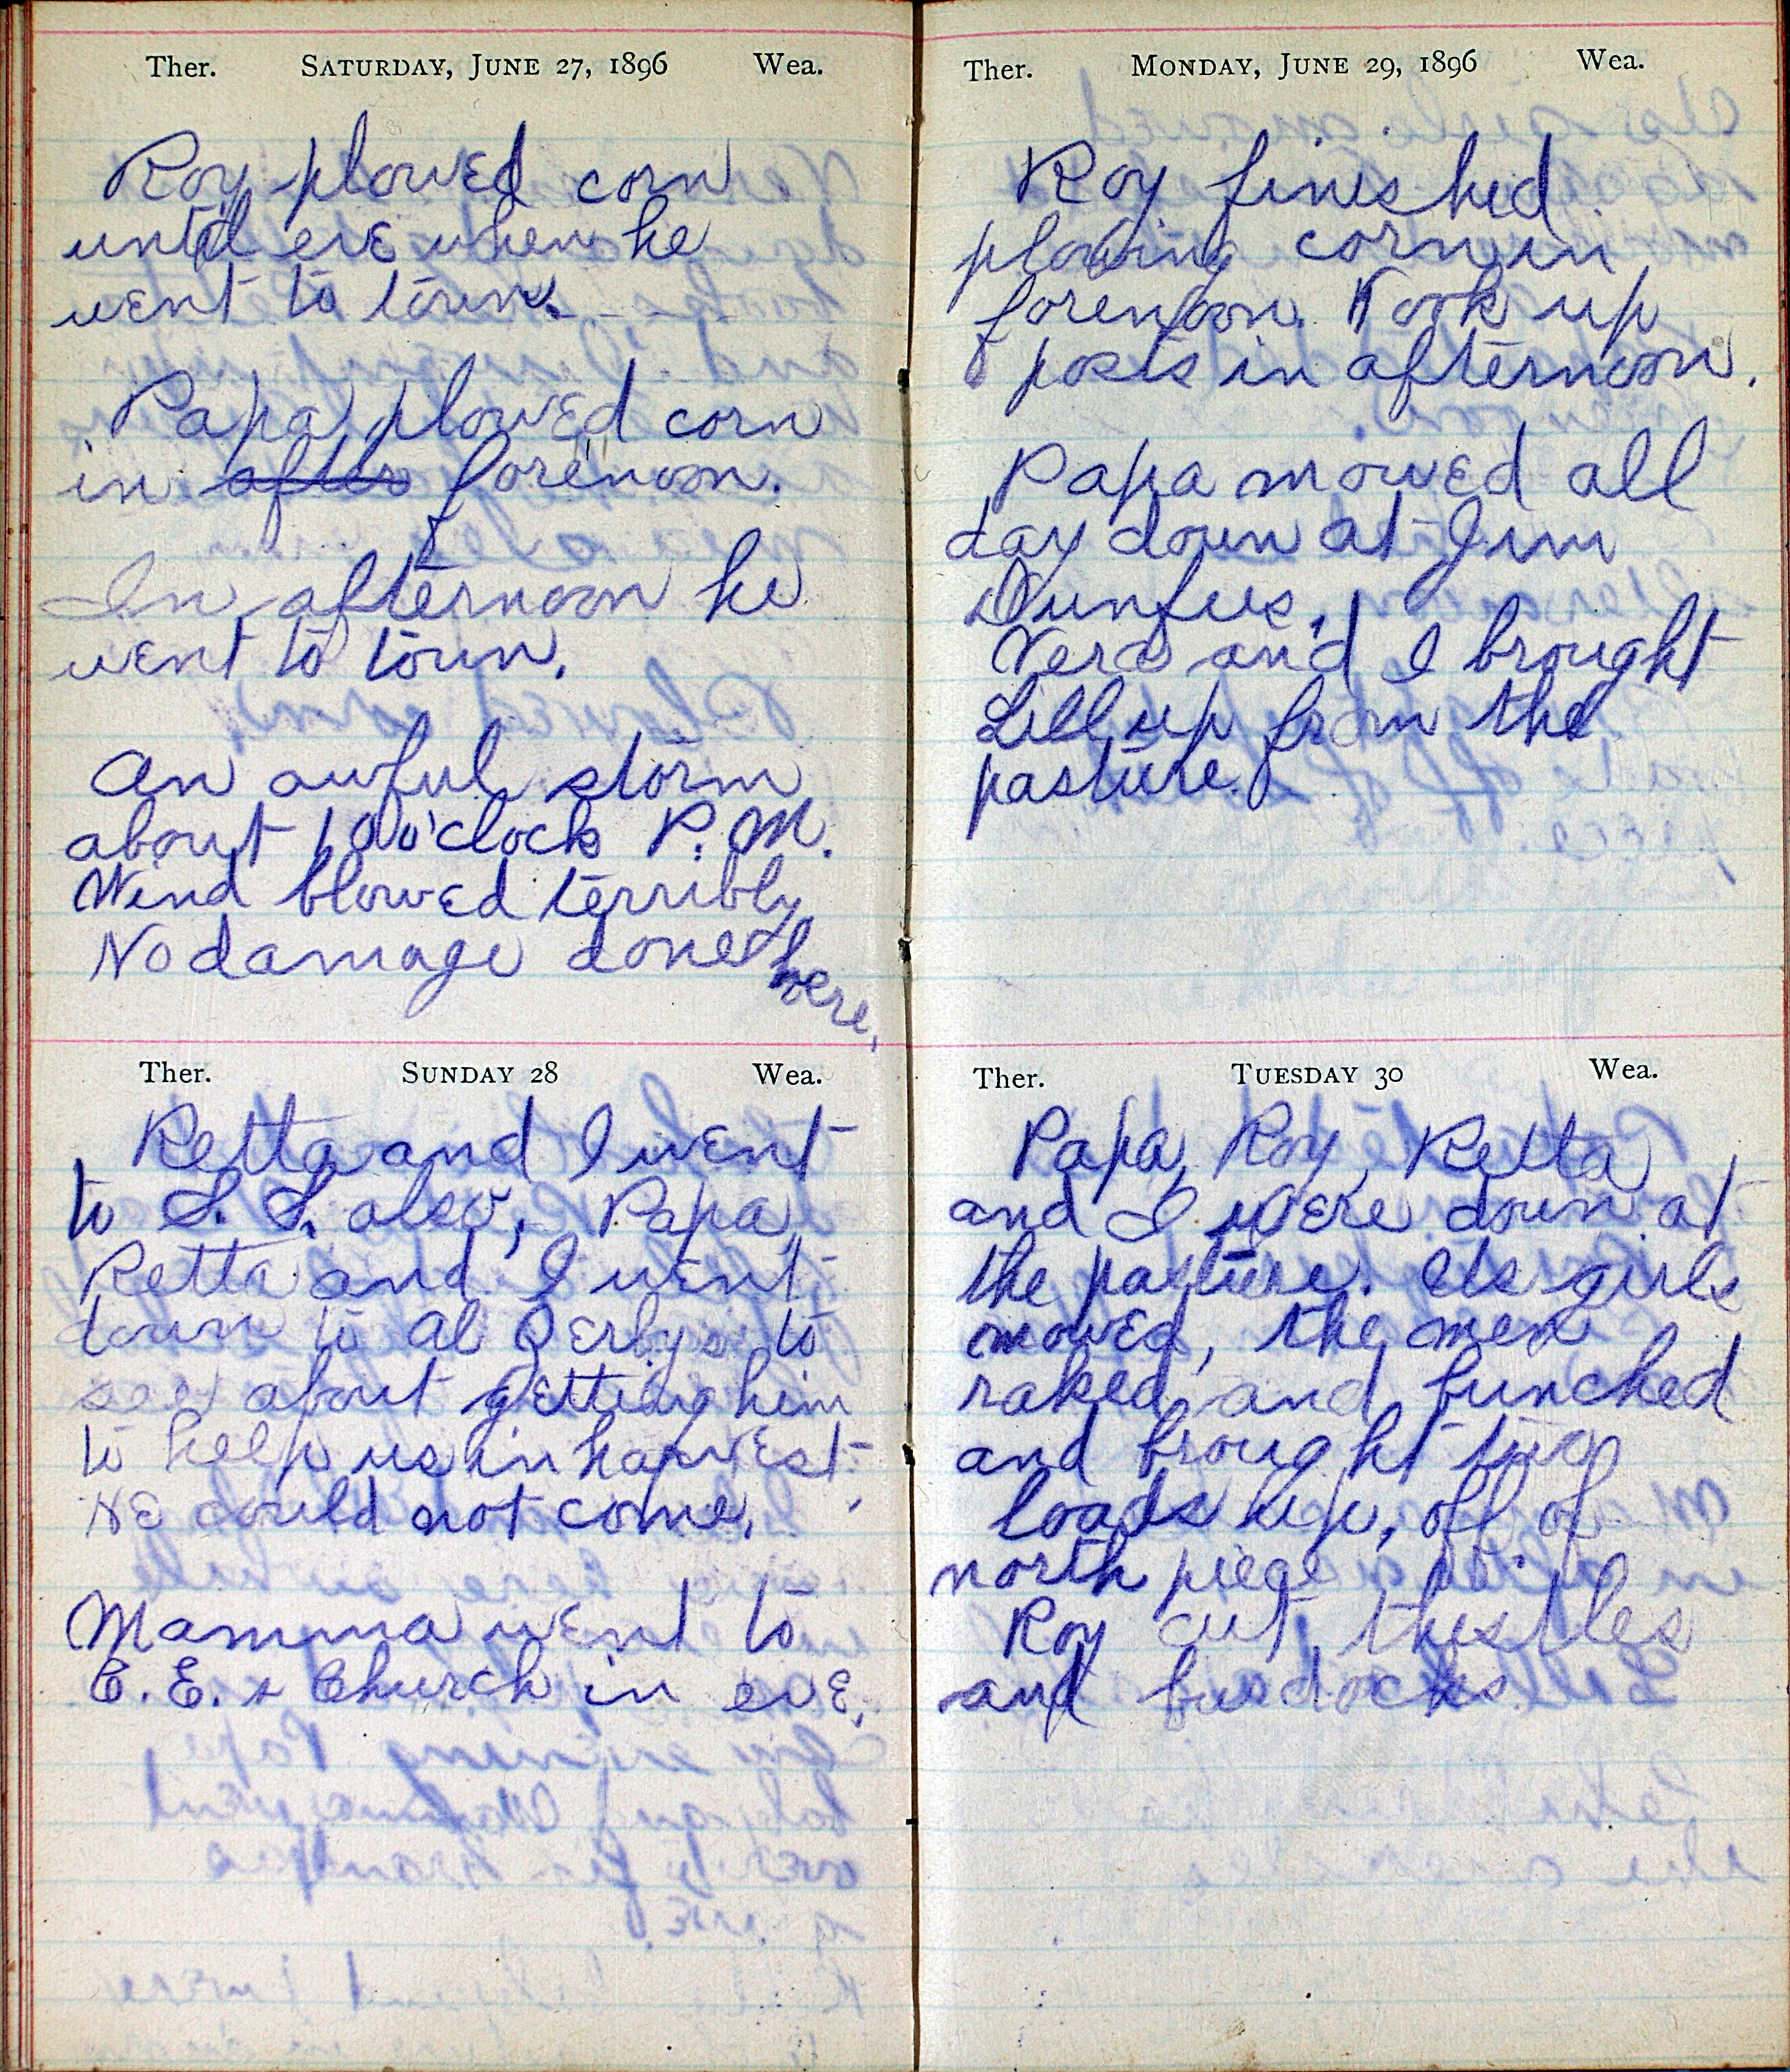 Ther. Saturday, June 27, 1896 Wea.
Roy plowed corn
until eve when he
went to town.
Papa plowed corn
in after forenoon.
In afternoon he
went to town.
An awful storm
about 10 o'clock P.M.
Wind blowed terribly
No damage done here.
Ther. Sunday 28 Wea.
Retta and I went
to S. S. also, Papa,
Retta and I went
down to Al Derbys to
see about getting him
to help us in harvest.
He could not come.
Mamma went to
C.E. & Church in eve.
Ther. Monday, June 29, 1896 Wea.
Roy finished
plowing corn in
forenoon. Took up
posts in afternoon.
Papa mowed all
day down at Jim
Dunfees.
Vera and I brought
Lill up from the
pasture.
Ther. Tuesday 30 Wea.
Papa, Roy, Retta
and I were down at
the pasture. Us girls
mowed, the men
raked and bunched
and brought two
loads up, off of
north piece
Roy cut thistles
and burdocks